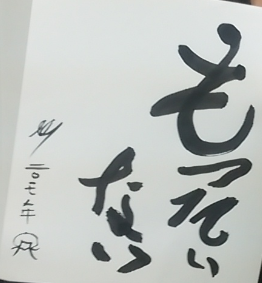 もってい
ない
二〇一七年